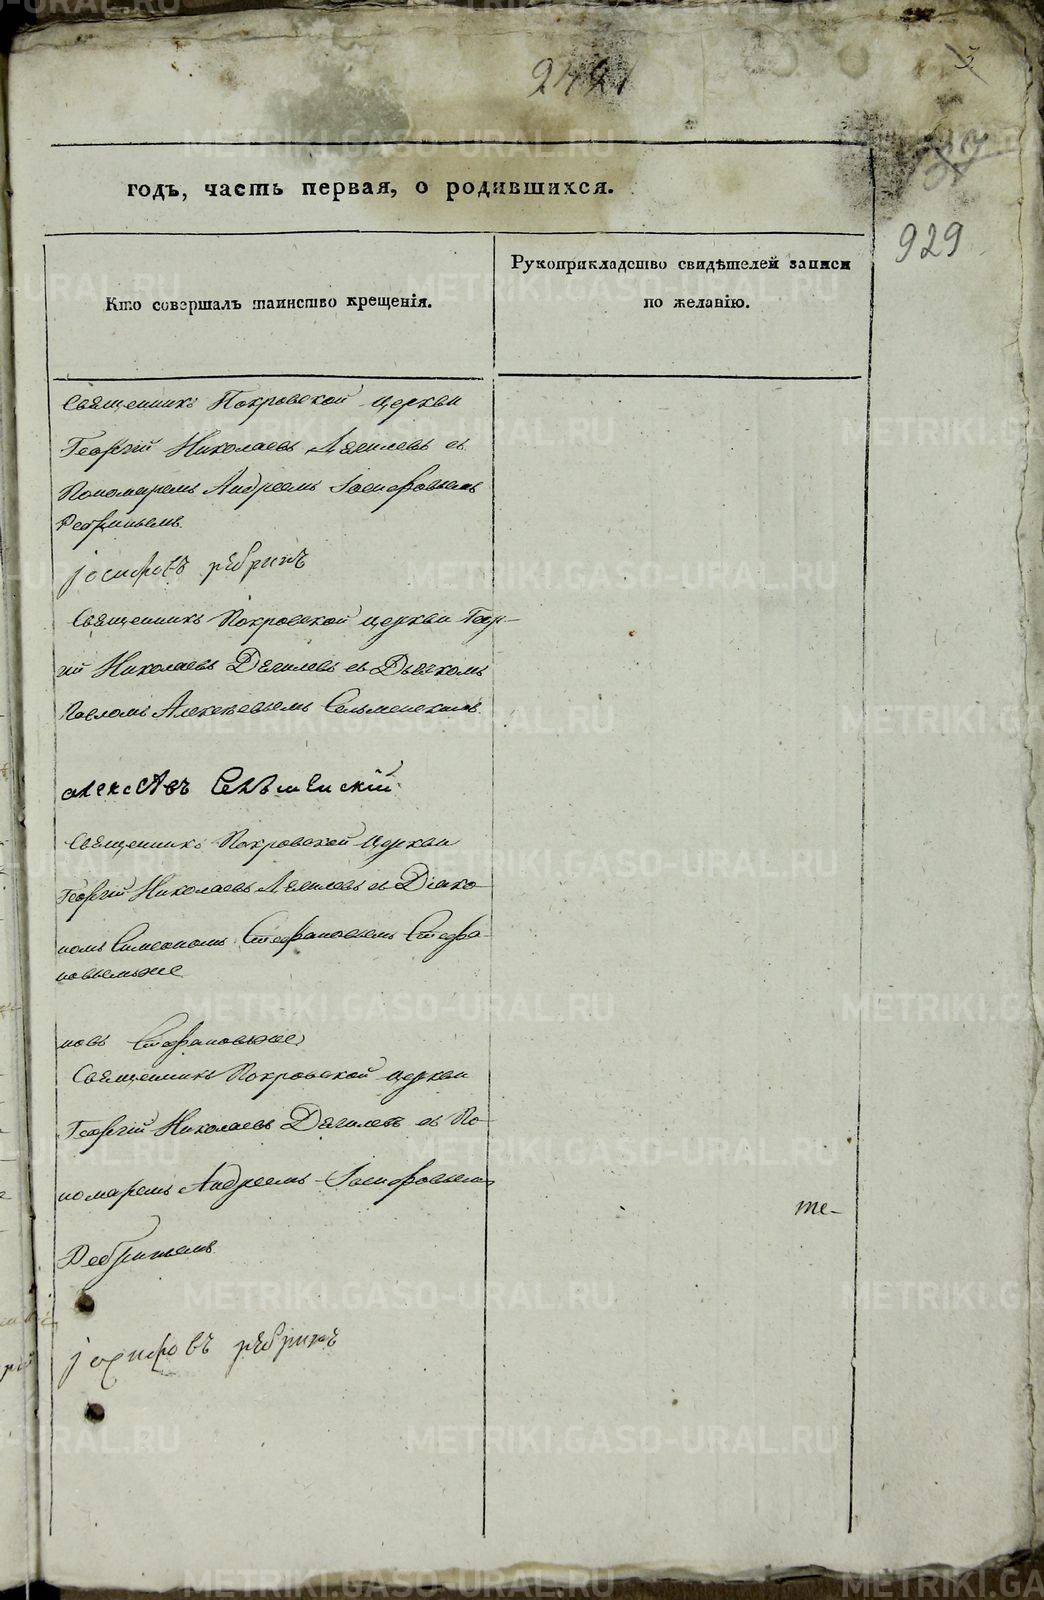 3
2421
годъ, часть первая, о родившихся.
929
Кто совершалъ таинство крещенія.
Рукоприкладство свидѣтелей записи
по желанію.
Священникъ Покровской церкви
Георгій Николаевъ Дягилевъ съ
Пономаремъ Андреемъ Іосифовымъ
Ребринымъ
Іосифовъ рѣбринъ
Священникъ Покровской церкви Геор-
гій Николаевъ Дягилевъ съ Дьячкомъ
Павломъ Алексѣевымъ Сельменскимъ
алексѣевъ Селѣменскій
Священникъ Покровской церкви
Георгій Николаевъ Дягилевъ съ Діако-
номъ Симеономъ Стефановымъ Стефа-
новымъже
новъ Стефановъже
Священникъ Покровской церкви
Георгій Николаевъ Дягилевъ съ По-
номаремъ Андреемъ Іосифовымъ
Ребринымъ
те-
Іосифовъ рѣбринъ
METRIKI.GASO-URAL.RU